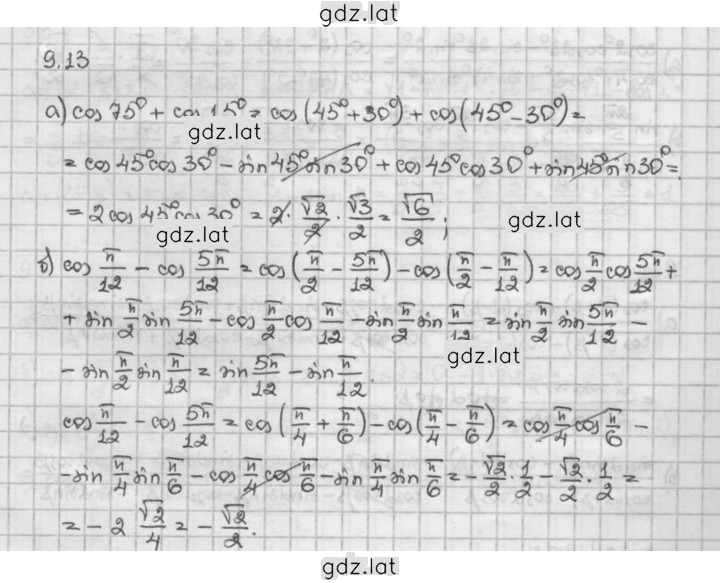 gdz.lat
9.13
а) cos 75° + cos 15° = cos (45° + 30°) + cos (45° - 30°) =
gdz.lat
= cos 45° cos 30° - sin 45° sin 30° + cos 45° cos 30° + sin 45° sin 30° =
= 2 cos 45° cos 30° = 2 · √2/2 · √3/2 = √6/2 ;
gdz.lat gdz.lat
б) cos π/12 - cos 5π/12 = cos (π/2 - 5π/12) - cos (π/2 - π/12) = cos π/2 cos 5π/12 +
+ sin π/2 sin 5π/12 - cos π/2 cos π/12 - sin π/2 sin π/12 = sin π/2 sin 5π/12 -
gdz.lat
- sin π/2 sin π/12 = sin 5π/12 - sin π/12.
cos π/12 - cos 5π/12 = cos (π/4 + π/6) - cos (π/4 - π/6) = cos π/4 cos π/6 -
- sin π/4 sin π/6 - cos π/4 cos π/6 - sin π/4 sin π/6 = - √2/2 · 1/2 - √2/2 · 1/2 =
= - 2 √2/4 = - √2/2.
gdz.lat